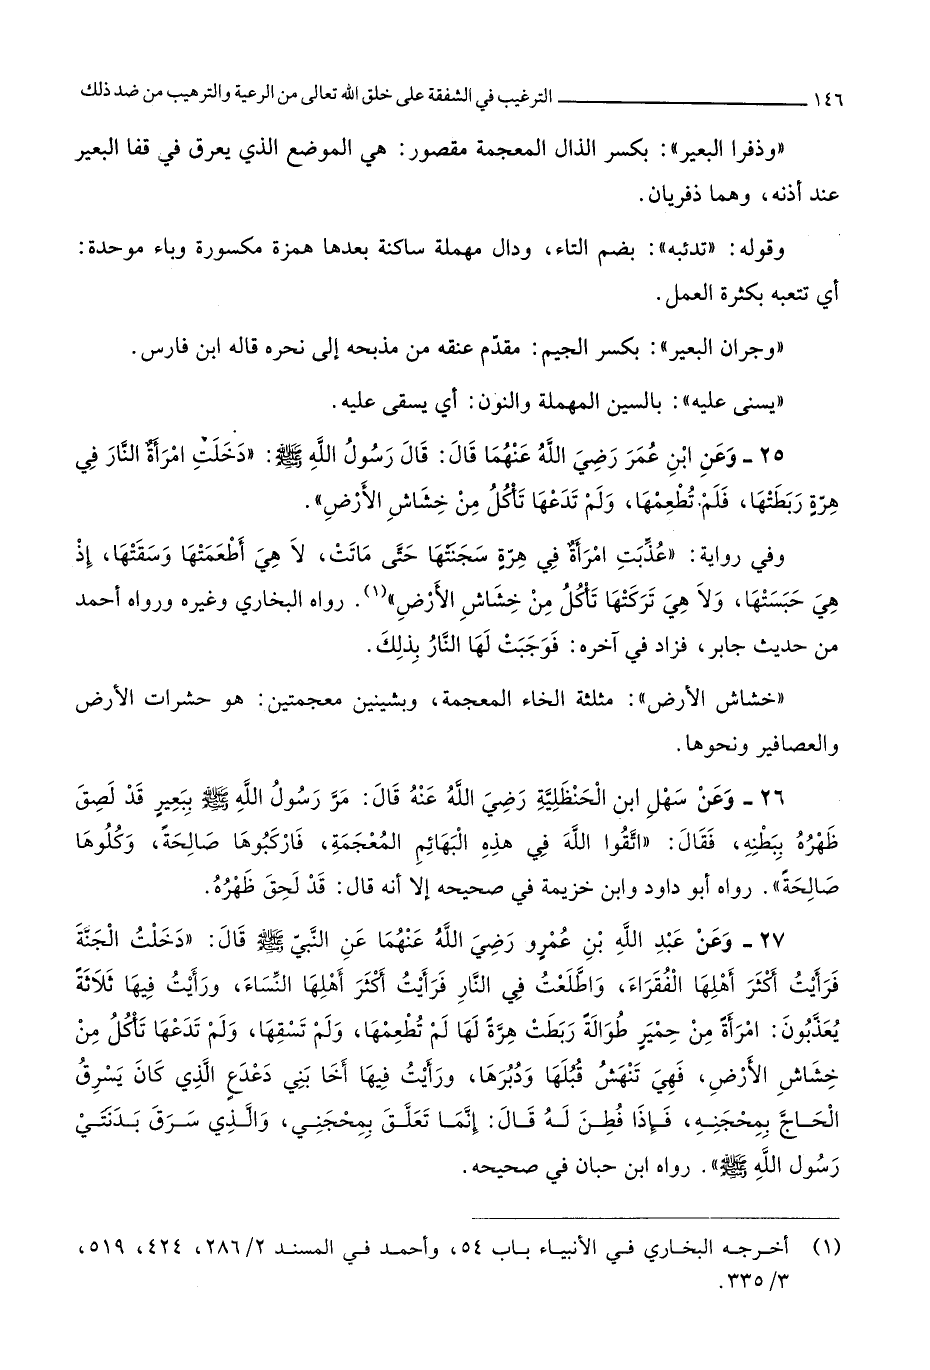 ١٤٦ ــــــــــــــــ الترغيب في الشفقة على خلق الله تعالى من الرعية والترهيب من ضد ذلك
«وذفرا البعير»: بكسر الذال المعجمة مقصور: هي الموضع الذي يعرق في قفا البعير
عند أذنه، وهما ذفريان.
وقوله: «تدئبه»: بضم التاء، ودال مهملة ساكنة بعدها همزة مكسورة وباء موحدة:
أي تتعبه بكثرة العمل.
«وجران البعير»: بكسر الجيم: مقدّم عنقه من مذبحه إلى نحره قاله ابن فارس.
«يسنى عليه»: بالسين المهملة والنون: أي يسقى عليه.
٢٥ ـ وَعَنِ ابْنِ عُمَرَ رَضِيَ اللَّهُ عَنْهُمَا قَالَ: قَالَ رَسُولُ اللَّهِ ﷺ: «دَخَلَتِ امْرَأَةٌ النَّارَ فِي
هِرَّةٍ رَبَطَتْهَا، فَلَمْ تُطْعِمْهَا، وَلَمْ تَدَعْهَا تَأْكُلُ مِنْ خِشَاشِ الأَرْضِ».
وفي رواية: «عُذِّبَتِ امْرَأَةٌ فِي هِرَّةٍ سَجَنَتْهَا حَتَّى مَاتَتْ، لاَ هِيَ أَطْعَمَتْهَا وَسَقَتْهَا، إِذْ
هِيَ حَبَسَتْهَا، وَلاَ هِيَ تَرَكَتْهَا تَأْكُلُ مِنْ خِشَاشِ الأَرْضِ»(١). رواه البخاري وغيره ورواه أحمد
من حديث جابر، فزاد في آخره: فَوَجَبَتْ لَهَا النَّارُ بِذلِكَ.
«خشاش الأرض»: مثلثة الخاء المعجمة، وبشينين معجمتين: هو حشرات الأرض
والعصافير ونحوها.
٢٦ ـ وَعَنْ سَهْلِ ابن الْحَنْظَلِيَّةِ رَضِيَ اللَّهُ عَنْهُ قَالَ: مَرَّ رَسُولُ اللَّهِ ﷺ بِبَعِيرٍ قَدْ لَصِقَ
ظَهْرُهُ بِبَطْنِهِ، فَقَالَ: «اتَّقُوا اللَّهَ فِي هذِهِ الْبَهَائِمِ المُعْجَمَةِ، فَارْكَبُوهَا صَالِحَةً، وَكُلُوهَا
صَالِحَةً». رواه أبو داود وابن خزيمة في صحيحه إلا أنه قال: قَدْ لَحِقَ ظَهْرُهُ.
٢٧ ـ وَعَنْ عَبْدِ اللَّهِ بْنِ عُمْرٍو رَضِيَ اللَّهُ عَنْهُمَا عَنِ النَّبِيّ ﷺ قَالَ: «دَخَلْتُ الْجَنَّةَ
فَرَأَيْتُ أَكْثَرَ أَهْلِهَا الْفُقَرَاءَ، وَاطَّلَعْتُ فِي النَّارِ فَرَأَيْتُ أَكْثَرَ أَهْلِهَا النِّسَاءَ، ورَأَيْتُ فِيهَا ثَلاَثَةً
يُعَذَّبُونَ: امْرَأَةً مِنْ حِمْيَرٍ طُوَالَةً رَبَطَتْ هِرَّةً لَهَا لَمْ تُطْعِمْهَا، وَلَمْ تَسْقِهَا، وَلَمْ تَدَعْهَا تَأْكُلُ مِنْ
خِشَاشِ الأَرْضِ، فَهِيَ تَنْهَشُ قُبُلَهَا وَدُبُرَهَا، ورَأَيْتُ فِيهَا أَخَا بَنِي دَعْدَعٍ الَّذِي كَانَ يَسْرِقُ
الْحَاجَّ بِمِحْجَنِهِ، فَإِذَا فُطِنَ لَهُ قَالَ: إِنَّمَا تَعَلَّقَ بِمِحْجَنِي، وَالَّذِي سَرَقَ بَدَنَتَيْ
رَسُول اللَّهِ ﷺ». رواه ابن حبان في صحيحه.
(١) أخرجه البخاري في الأنبياء باب ٥٤، وأحمد في المسند ٢/ ٢٨٦، ٤٢٤، ٥١٩،
٣/ ٣٣٥.